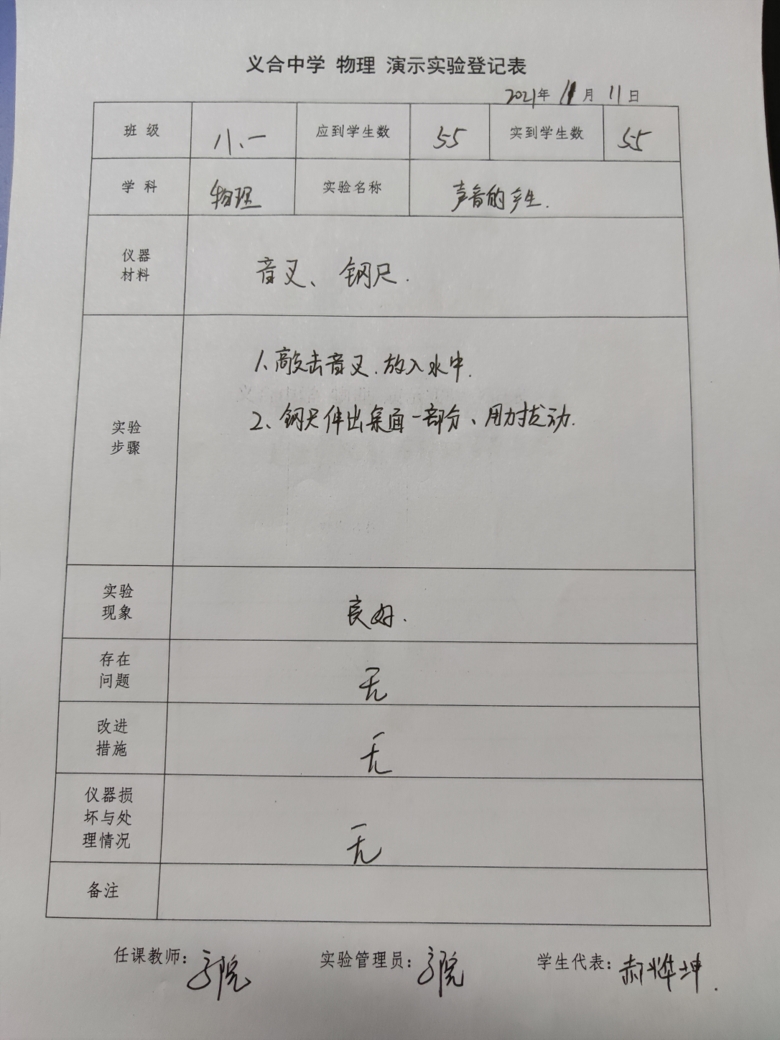 义合中学 物理 演示实验登记表
2021年 11月 11日
班级 八.一 应到学生数 55 实到学生数 55
学科 物理 实验名称 声音的产生.
仪器
材料
音叉、钢尺.
实验
步骤
1、敲击音叉.放入水中.
2、钢尺伸出桌面一部分、用力拨动.
实验
现象
良好.
存在
问题
无
改进
措施
无
仪器损
坏与处
理情况
无
备注
任课教师: 实验管理员: 学生代表: 郝烨坤.